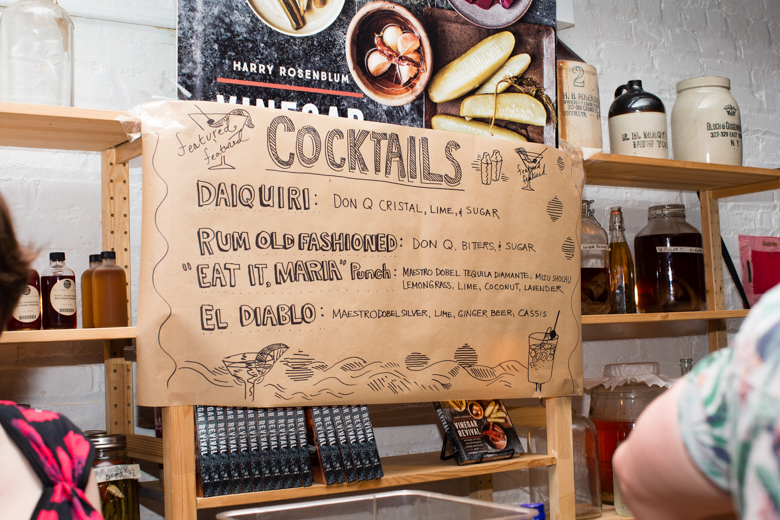 HARRY ROSENBLUM
VINEGAR
2
featured
featured
COCKTAILS
featured
featured
DAIQUIRI: DON Q CRISTAL, LIME, & SUGAR
RUM OLD FASHIONED: DON Q. BITERS, & SUGAR
"EAT IT, MARIA" Punch: MAESTRO DOBEL TEQUILA DIAMANTE, MIZU SHOCHU
LEMONGRASS, LIME, COCONUT, LAVENDER
EL DIABLO: MAESTRO DOBEL SILVER, LIME, GINGER BEER, CASSIS
N.Y.
VINEGAR
REVIVAL